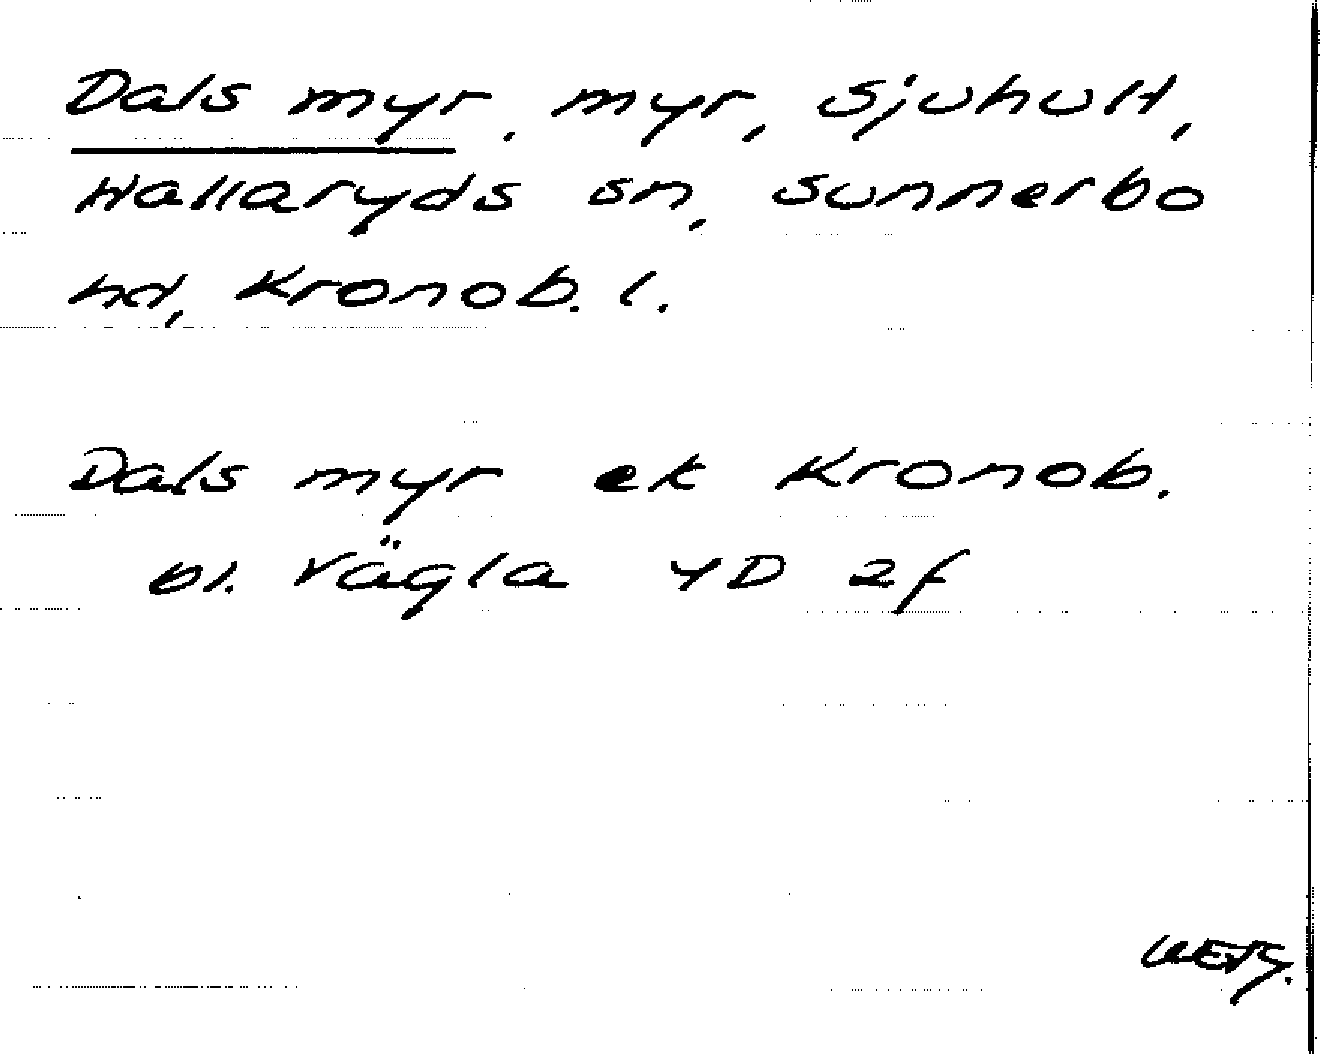 Dals myr, myr, Sjuhult,
Hallaryds sn, Sunnerbo
hd, Kronob. l.
Dals myr ek Kronob.
bl. Vägla 4D 2f